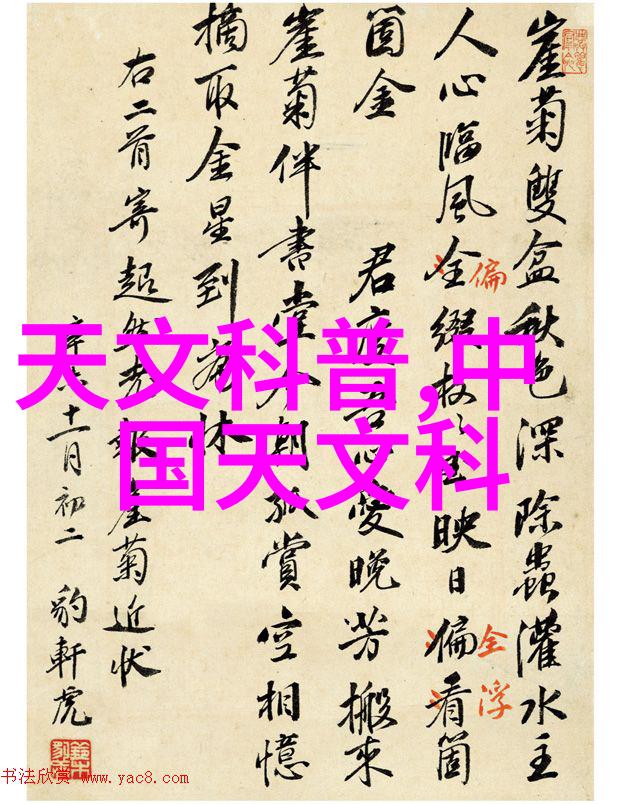 崖菊雙盆秋色深除蟲灌水主
人心臨風全綴枝映日偏看箇
偏
全
浮
箇金 君心愛晚芳搬來
崖菊伴書堂朝孤賞空相憶
摘取金星到
右二首寄超然報崖菊近状
十一月初二 豹軒虎
天文科普,中
国天文科
书法欣赏 www.yac8.com